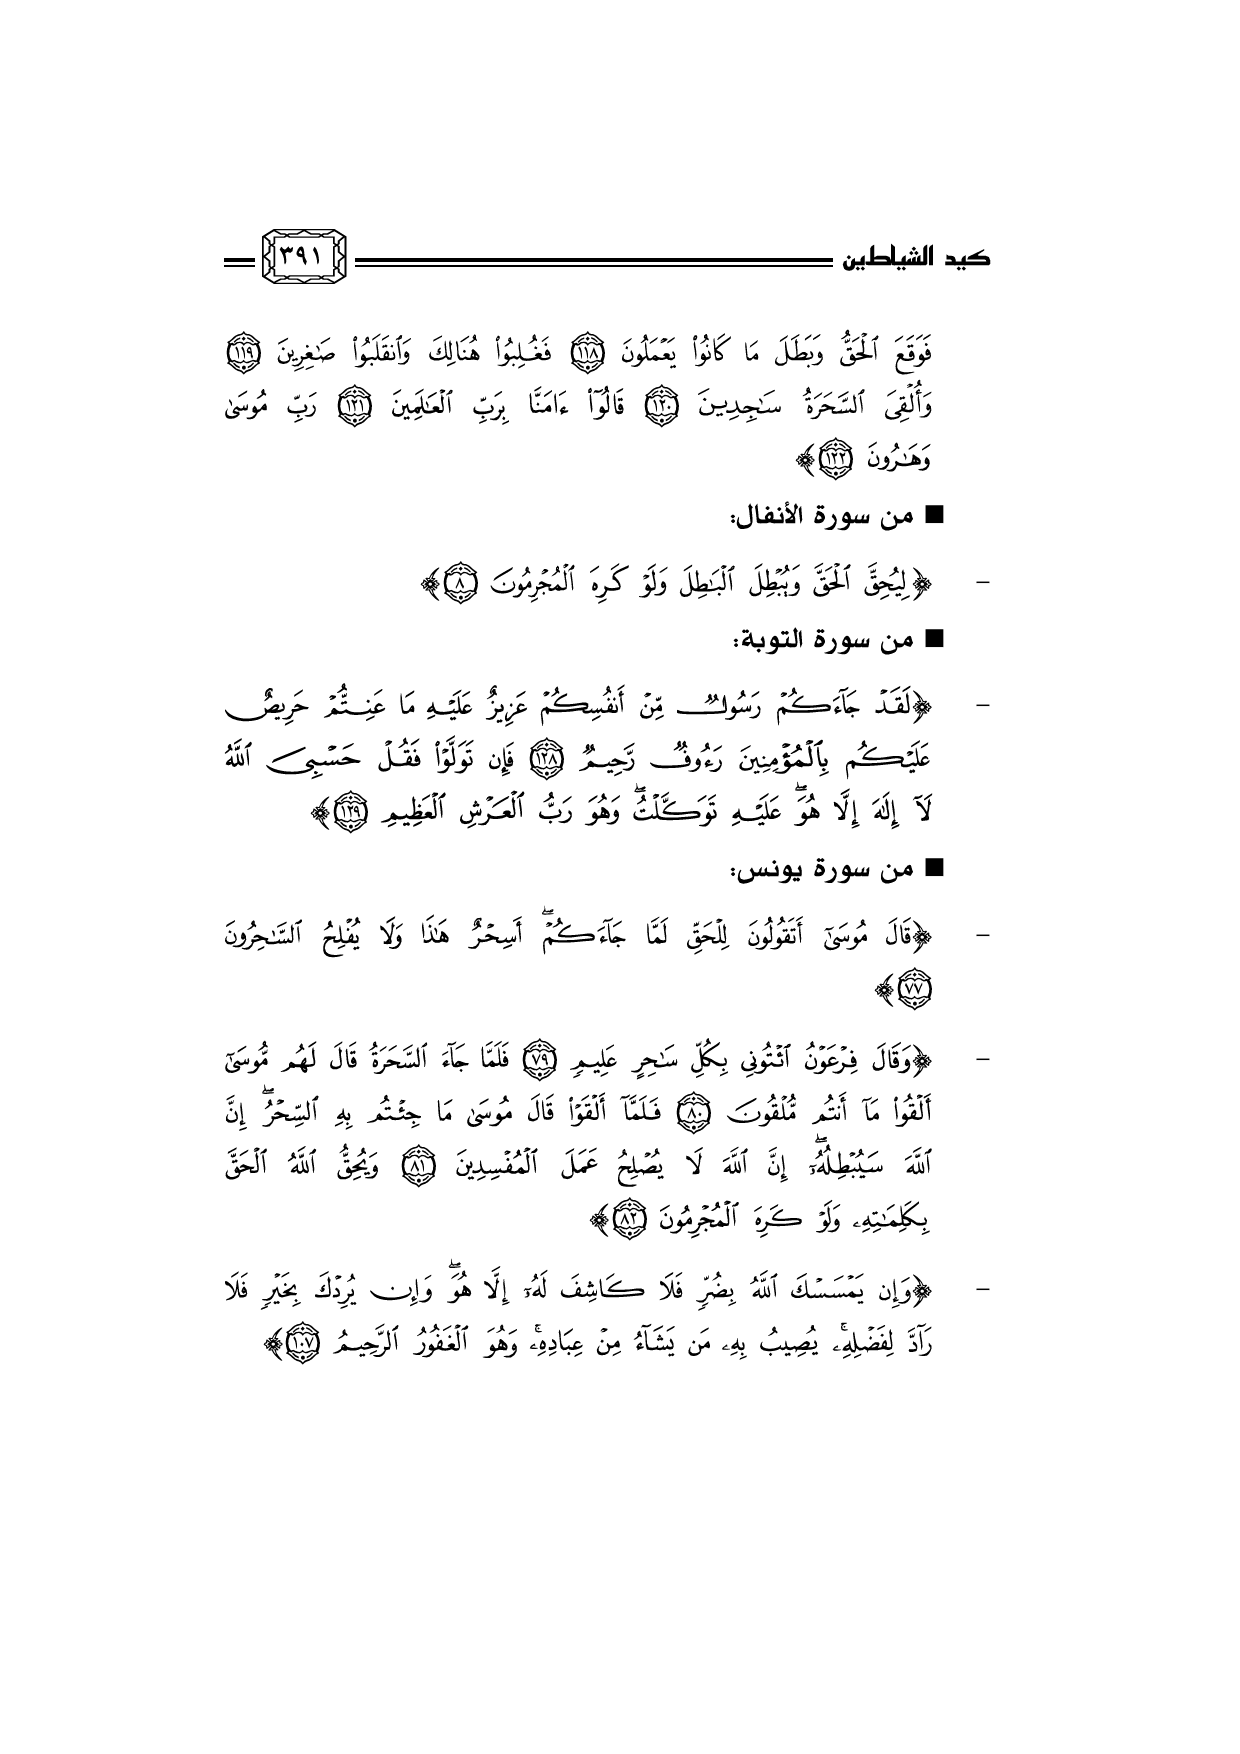 كيد الشياطين ٣٩١
فَوَقَعَ ٱلْحَقُّ وَبَطَلَ مَا كَانُوا۟ يَعْمَلُونَ ١١٨ فَغُلِبُوا۟ هُنَالِكَ وَٱنقَلَبُوا۟ صَٰغِرِينَ ١١٩
وَأُلْقِىَ ٱلسَّحَرَةُ سَٰجِدِينَ ١٢٠ قَالُوٓا۟ ءَامَنَّا بِرَبِّ ٱلْعَٰلَمِينَ ١٢١ رَبِّ مُوسَىٰ
وَهَٰرُونَ ١٢٢﴾
■ من سورة الأنفال:
- ﴿لِيُحِقَّ ٱلْحَقَّ وَيُبْطِلَ ٱلْبَٰطِلَ وَلَوْ كَرِهَ ٱلْمُجْرِمُونَ ٨﴾
■ من سورة التوبة:
- ﴿لَقَدْ جَآءَكُمْ رَسُولٌ مِّنْ أَنفُسِكُمْ عَزِيزٌ عَلَيْهِ مَا عَنِتُّمْ حَرِيصٌ
عَلَيْكُم بِٱلْمُؤْمِنِينَ رَءُوفٌ رَّحِيمٌ ١٢٨ فَإِن تَوَلَّوْا۟ فَقُلْ حَسْبِىَ ٱللَّهُ
لَآ إِلَٰهَ إِلَّا هُوَ ۖ عَلَيْهِ تَوَكَّلْتُ ۖ وَهُوَ رَبُّ ٱلْعَرْشِ ٱلْعَظِيمِ ١٢٩﴾
■ من سورة يونس:
- ﴿قَالَ مُوسَىٰٓ أَتَقُولُونَ لِلْحَقِّ لَمَّا جَآءَكُمْ ۖ أَسِحْرٌ هَٰذَا وَلَا يُفْلِحُ ٱلسَّٰحِرُونَ
٧٧﴾
- ﴿وَقَالَ فِرْعَوْنُ ٱئْتُونِى بِكُلِّ سَٰحِرٍ عَلِيمٍ ٧٩ فَلَمَّا جَآءَ ٱلسَّحَرَةُ قَالَ لَهُم مُّوسَىٰٓ
أَلْقُوا۟ مَآ أَنتُم مُّلْقُونَ ٨٠ فَلَمَّآ أَلْقَوْا۟ قَالَ مُوسَىٰ مَا جِئْتُم بِهِ ٱلسِّحْرُ ۖ إِنَّ
ٱللَّهَ سَيُبْطِلُهُۥٓ ۖ إِنَّ ٱللَّهَ لَا يُصْلِحُ عَمَلَ ٱلْمُفْسِدِينَ ٨١ وَيُحِقُّ ٱللَّهُ ٱلْحَقَّ
بِكَلِمَٰتِهِۦ وَلَوْ كَرِهَ ٱلْمُجْرِمُونَ ٨٢﴾
- ﴿وَإِن يَمْسَسْكَ ٱللَّهُ بِضُرٍّ فَلَا كَاشِفَ لَهُۥٓ إِلَّا هُوَ ۖ وَإِن يُرِدْكَ بِخَيْرٍ فَلَا
رَآدَّ لِفَضْلِهِۦ ۚ يُصِيبُ بِهِۦ مَن يَشَآءُ مِنْ عِبَادِهِۦ ۚ وَهُوَ ٱلْغَفُورُ ٱلرَّحِيمُ ١٠٧﴾